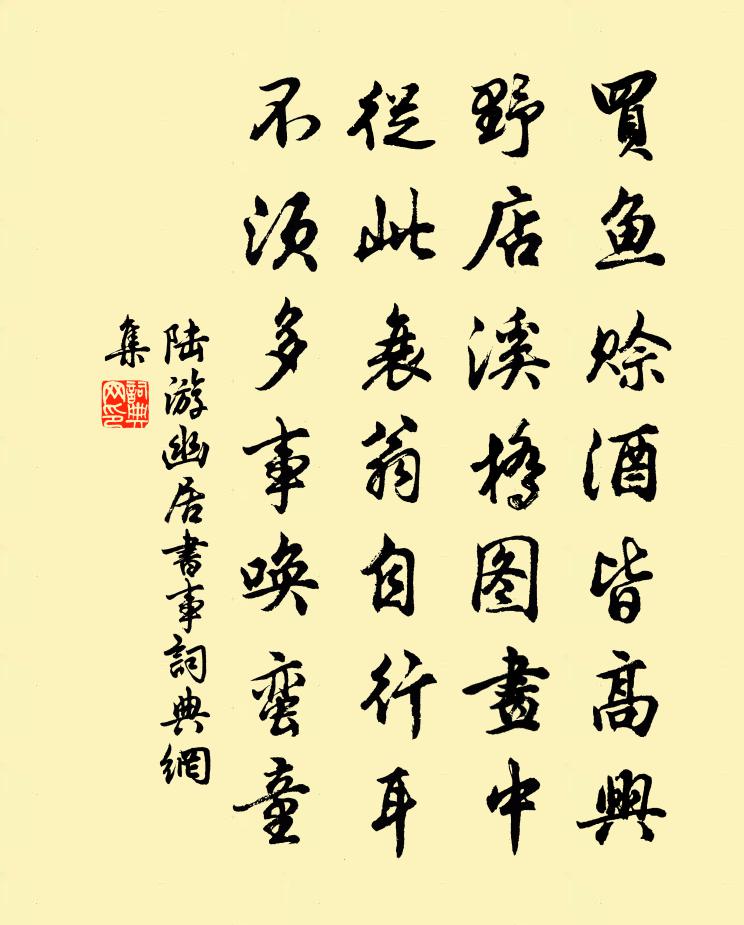 買鱼赊酒皆高興
野店溪橋图畫中
從此衰翁自行耳
不須多事唤蛮童
陆游幽居書事詞典網
集
詞典
网印